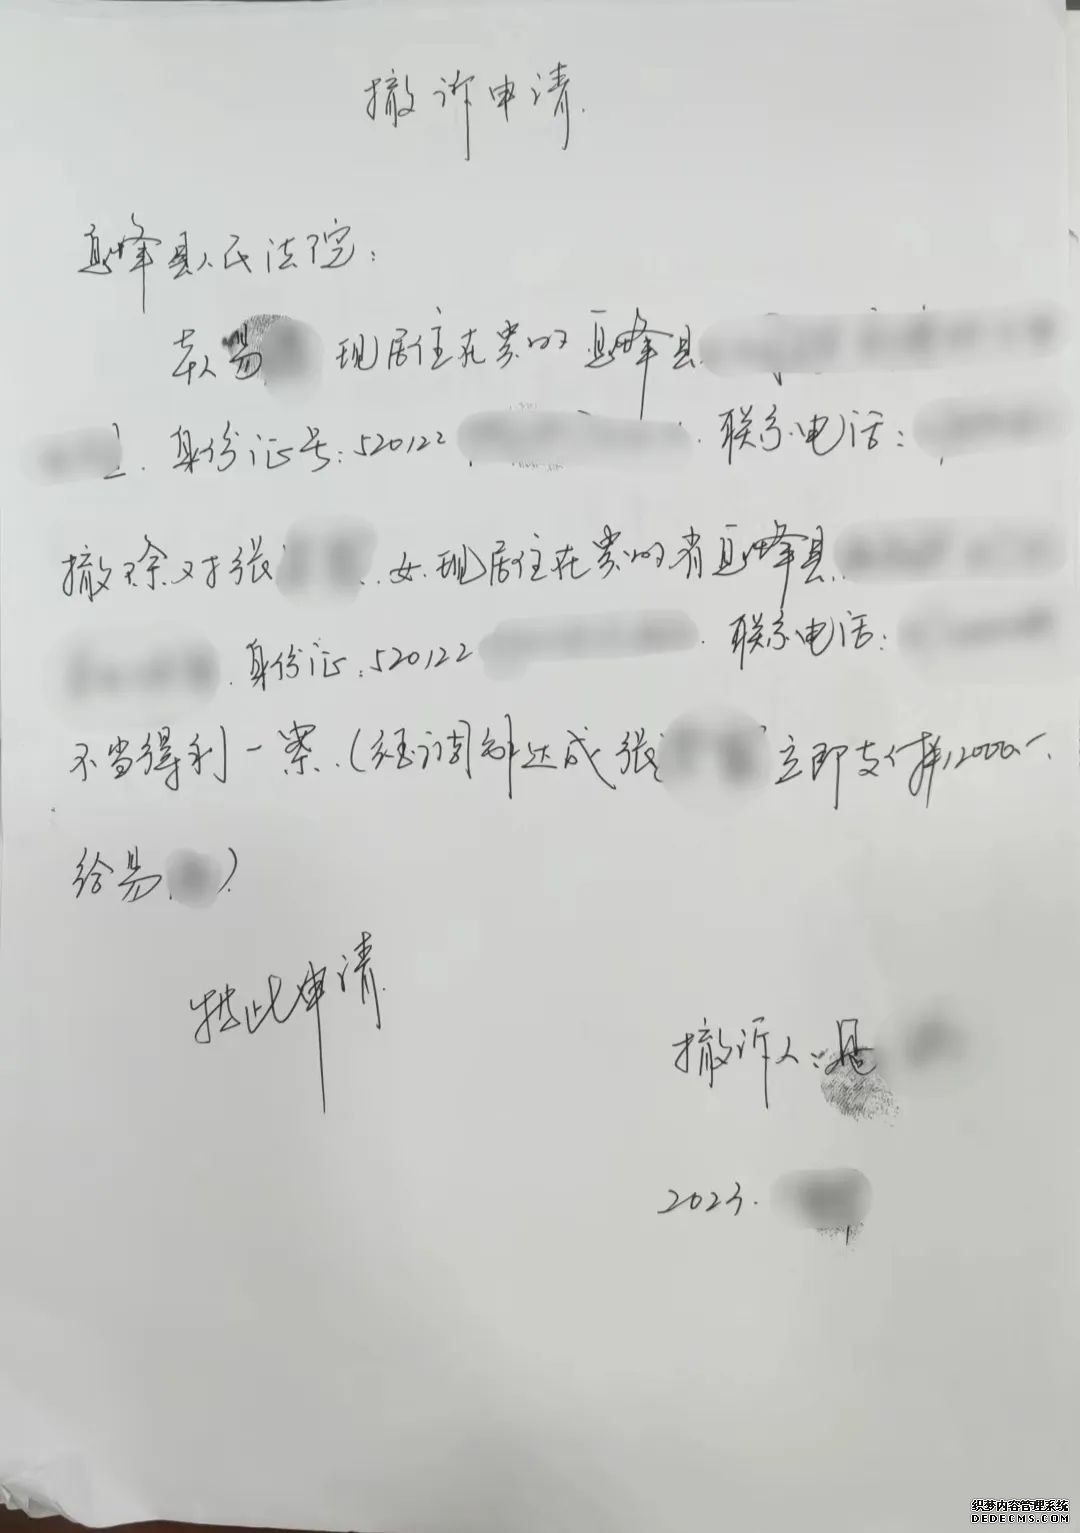 撤诉申请.
息烽县人民法院:
本人易 现居住在贵州 息烽县
身份证号:520122 联系电话:
撤除对张 女.现居住在贵州省息烽县
身份证:520122 联系电话:
不当得利一案.(经调解达成张 立即支付 12000
给易 )
特此申请
撤诉人:易
2023.
织梦内容管理系统
DEDECMS.COM